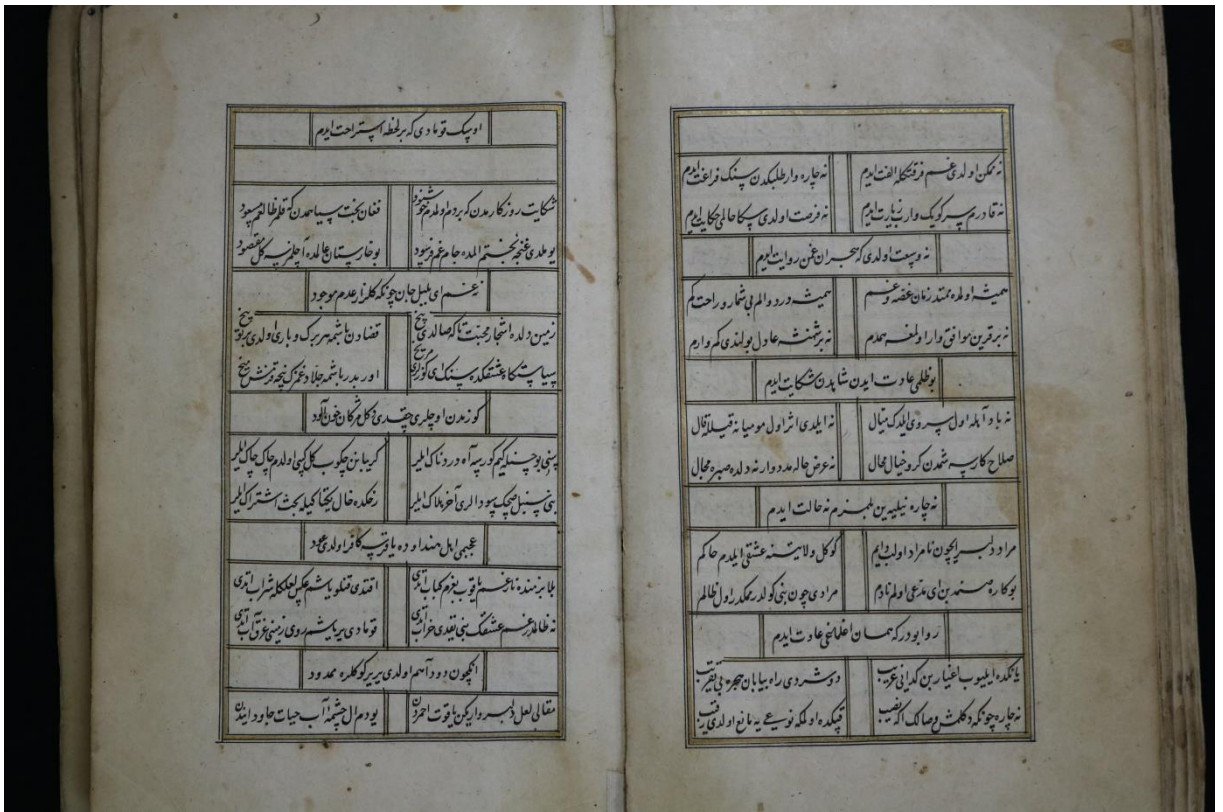 نه ممکن اولدی غم فرقتکله الفت ایدم نه چاره وار طلبکدن سنک فراغت ایدم
نه قادرم سر کویک واروب زیارت ایدم نه فرصت اولدی سکا حالمی حکایت ایدم
نه وسعت اولدی که هجران غمن روایت ایدم
همیشه اولمده ممتد زمان غصه و غم همیشه درد و الم بی شمار و راحت کم
نه بر قرین موافق وار اولمغه همدم نه بر شهنشه عادل بولندی کم وارم
بو ظلمی عادت ایدن شاهدن شکایت ایدم
نه یاد آیله اول سروی ایلدک میال نه ایلدی اثر اول مو میانه قیل و قال
صلاح کار سه شمدن کرو خیال محال نه عرض حاله مدد وار نه دلده صبره مجال
نه چاره نیلیه ین بلمزم نه حالت ایدم
مراد دلبر ایچون نامراد اولب ایم کوکل ولایتنه عشقی ایلدم حاکم
بو کاره سن بنی ای مدعی اولم نادم مرادی چون بنی کولدرمکدر اول ظالم
روا بودر که همان اغلماغی عادت ایدم
یانکده ایلیوب اغیار بن کدایی غریب دوشردی راه بیابان هجره بی تقریب
نه چاره چونکه دکلمش وصالک اکا نصیب قپکده اولمکه نوعی یه مانع اولدی رقیب
اویسک قومادی که بر لحظه استراحت ایدم
شکایت روزکارمدن که بر دم اولمدم خوشنود فغان بخت سیاهمدن که قلر ظالعم مسعود
یوملدی غنچه بختم المده جام غم فرسود بو خارستان عالمده آچلمز سه کل مقصود
نه غم ای بلبل جان چونکه کلزار عدم موجود
زمین دلده اشجار محبت تا که صالدی بیخ قضادن باشمه هر برک و باری اولدی بر توبیخ
سیاستکاه عشقکده سنک ای کوزلری مریخ اورر بدر باشمه جلاد غمزک نیجه قرنش میخ
کوزمدن اوچلری چقدی دکل مژکان خون آلود
سنی بوحسنله کیم کورسه آه دردناک ایلر کریبانن چکوب کل کبی اولدم چاک چاک ایلر
بنی سنبل صچک سودالری آخر هلاک ایلر رنحکده خال یکتا کیله بحث اشتراک ایلر
عجبمی اهل هند اوده یاقرسه کافر اولدی عود
بلا بزمنده نار غم یاقوب بغرم کباب اتدی اقتدی قنلو یاشم عکس لعلکله شراب اتدی
نه ظالمدر غم عشقک بنی یقدی خراب اتدی قومادی بر یاشم روی زمینی غرق آب اتدی
انکچون دود آهم اولدی یر یر کوکلره ممدود
مقالی لعل دلبر وارکن یاقوت احمردن یودم ال چشمه آب حیات جاودانیدن